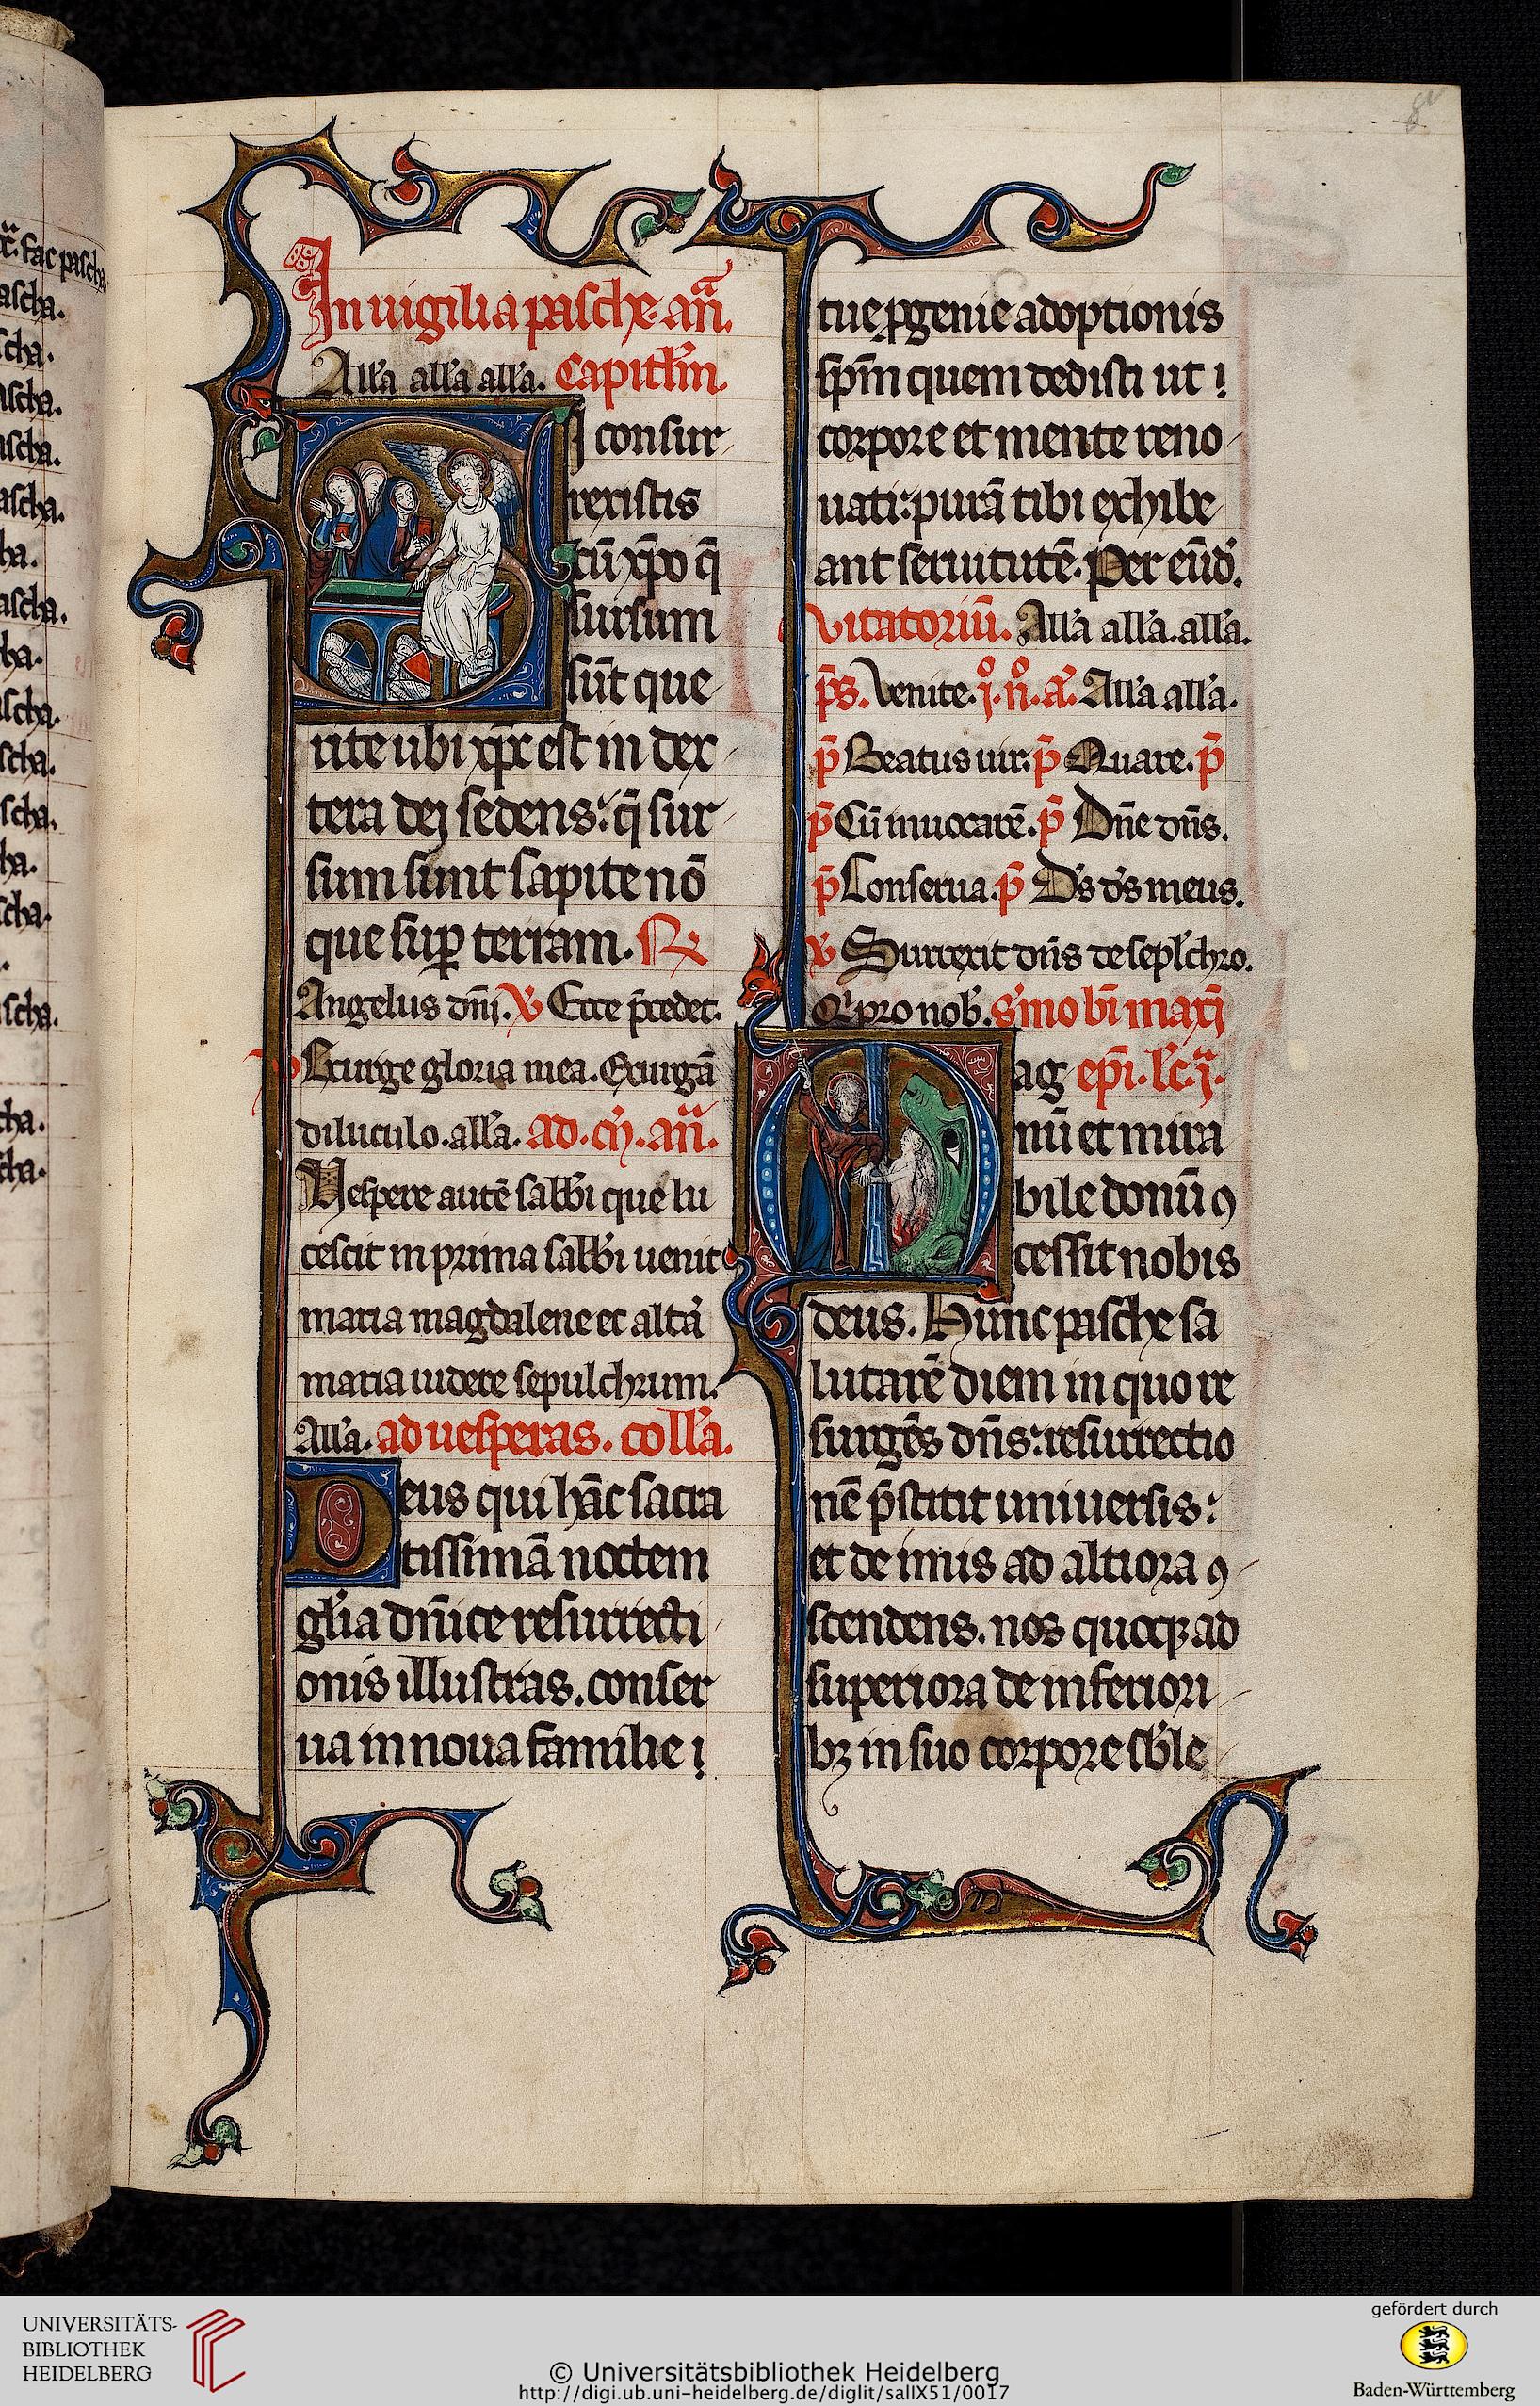 8
In uigilia pasche. an̄.
All'a all'a all'a. Capitl'm.
SI consur-
rexistis
cū xp̄o q̄
sursum
sūt que-
rite ubi xp̄c est in dex-
tera dej sedens: q̄ sur-
sum sunt sapite nō
que suꝑ terram. R
Angelus dn̄j. V Ecce p̄cedet.
V Exurge gloria mea. Exurgā
diluculo. all'a. ad. m̄. an̄.
Vespere autē sabb'i que lu
cescit in prima sabb'i uenit
maria magdalene et alt'a
maria uidere sepulchrum.
All'a. ad uesperas. coll'a.
Deus qui hāc sacra
tissimā noctem
gl'ia dn̄ice resurrecti-
onis illustras. conser-
ua in noua familie
tue ꝓgenie adoptionis
sp̄m quem dedisti ut
corpore et mente reno-
uati: purā tibi exhibe-
ant seruitutē. Per eūd'.
vitatoriū. All'a all'a. all'a.
p̄s. Venite. j°. n°. a'. All'a all'a.
p̄ Beatus uir. p̄ Quare. p̄
p̄ Cū inuocarē. p̄ Dn̄e dn̄s.
p̄ Conserua. p̄ D's d's meus.
V Surrexit dn̄s de sepl'chro.
Q' pro nob'. s'mo bī maxī
Mag ep̄i. lc̄. j.
nū et mira
bile donū ꝯ
cessit nobis
deus. Hunc pasche sa
lutarē diem in quo re
surgēs dn̄s: resurrectio
nē p̄stitit uniuersis:
et de imis ad altiora ꝯ-
scendens. nos quoqꝫ ad
superiora de inferiori-
bꝫ in suo corpore sb'le-
ascha.
UNIVERSITÄTS-
BIBLIOTHEK
HEIDELBERG
© Universitätsbibliothek Heidelberg
http://digi.ub.uni-heidelberg.de/diglit/salIX51/0017
gefördert durch
Baden-Württemberg